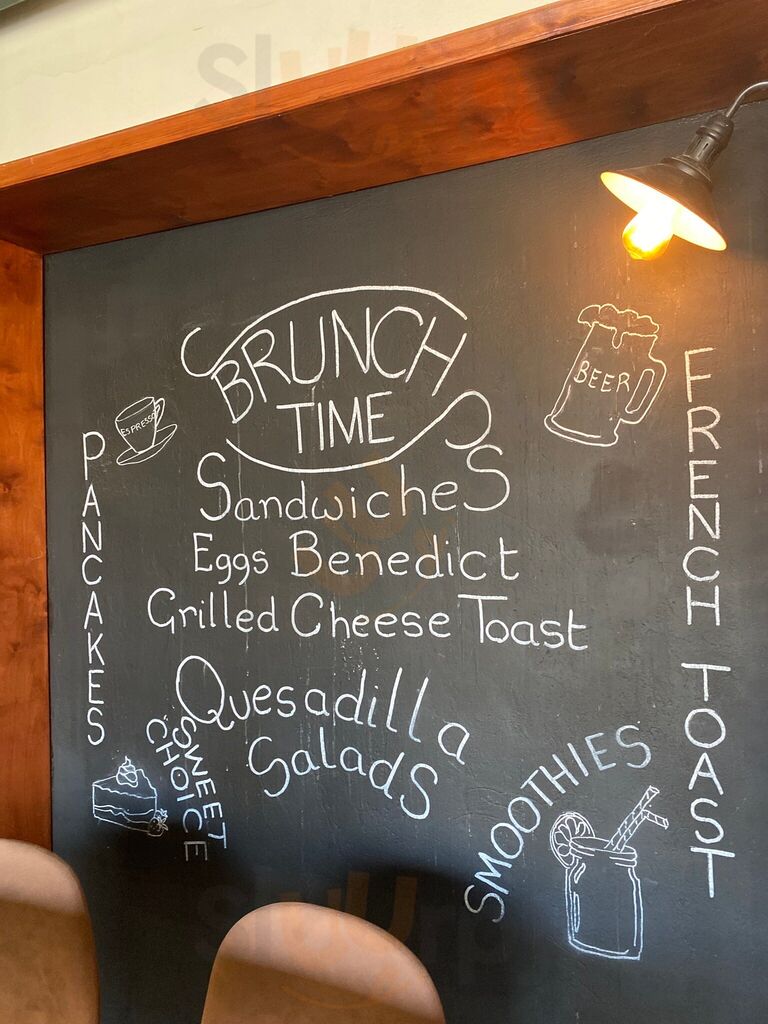 BRUNCH
TIME
ESPRESSO
BEER
SandwicheS
Eggs Benedict
Grilled Cheese Toast
Quesadilla
SaladS
PANCAKES
FRENCH TOAST
SWEET
CHOICE
SMOOTHIES